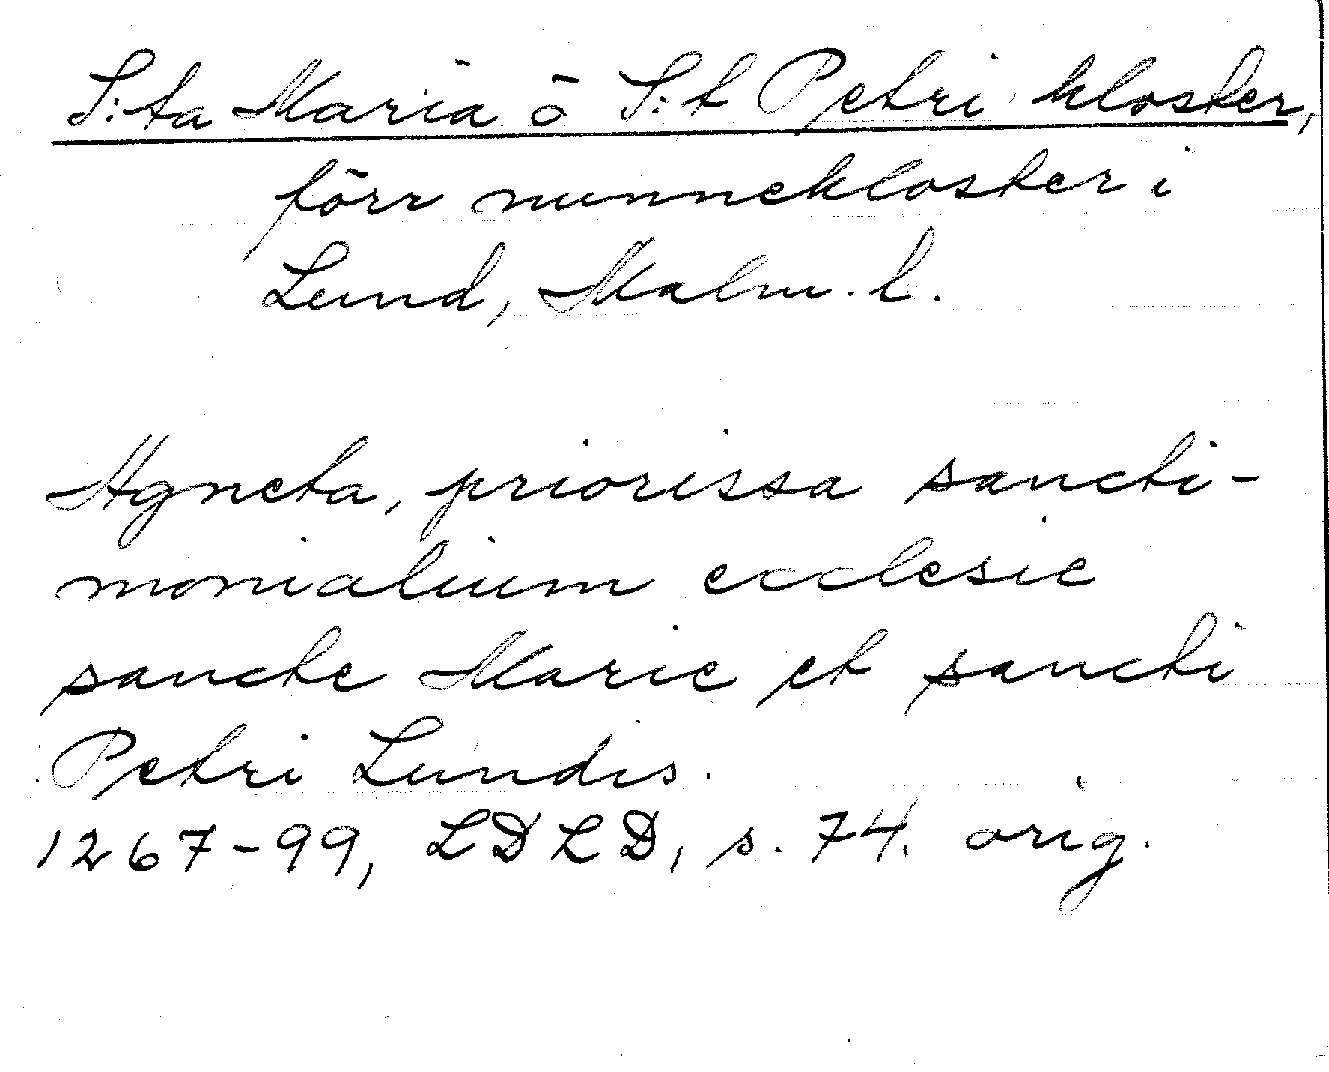 S:ta Maria o S:t Petri kloster,
förr nunnekloster i
Lund, Malm. l.
Agneta, priorissa sancti-
monialium ecclesie
sancte Marie et sancti
Petri Lundis.
1267-99, LDLD, s. 74. orig.